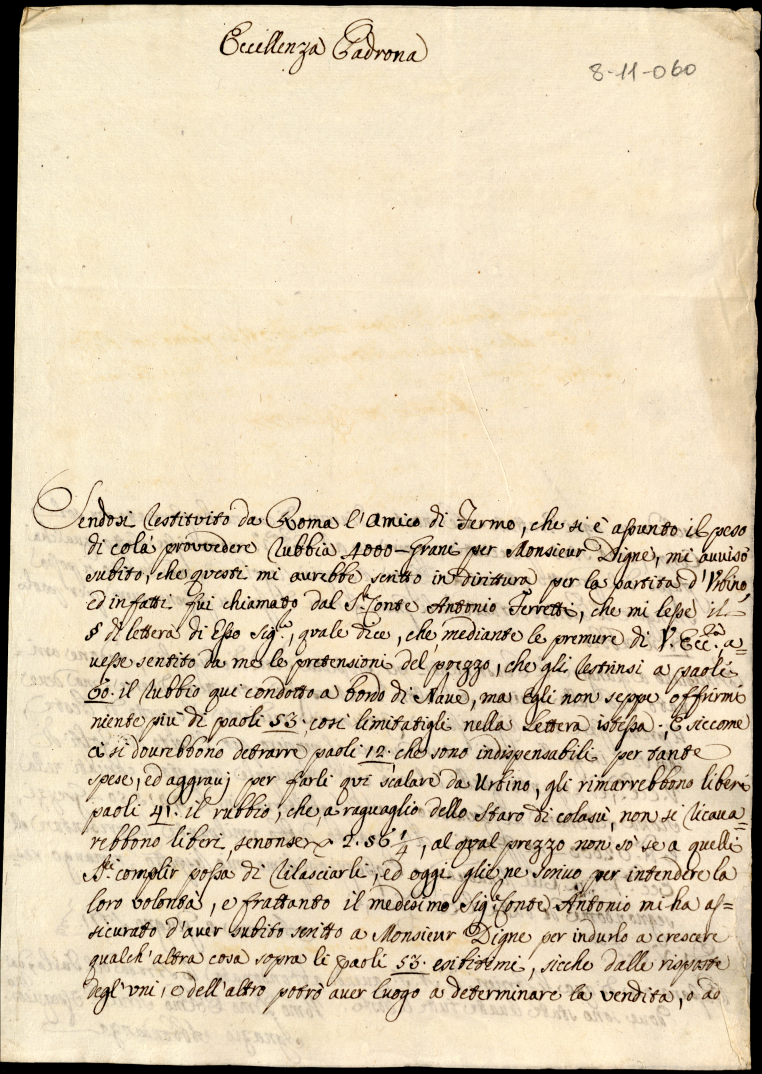 Eccellenza Padrona
8-11-060
Sendosi restituito da Roma l'Amico di Fermo, che si è assunto il peso
di colà provvedere rubbia 4000 - Grani per Monsieur Digne, mi avvisò
subito, che questi mi avrebbe scritto in dirittura per la partita d'Urbino
ed infatti fui chiamato dal Sr. Conte Antonio Ferretti, che mi lesse il
§ di lettera di Esso Sigre, quale dice, che mediante le premure di V. Eccza a=
vesse sentito da me le pretensioni del prezzo, che gli restrinsi a paoli
60. il rubbio qui condotto a bordo di Nave, ma Egli non seppe offrirmi
niente più di paoli 53. così limitatigli nella lettera istessa. E siccome
ci si dovrebbono detrarre paoli 12. che sono indispensabili per tante
spese, ed aggravj per farli qui scalare da Urbino, gli rimarrebbono liberi
paoli 41. il rubbio, che a raguaglio dello Staro di colasù, non si ricava=
rebbono liberi, senonse 2.56 1/4, al qual prezzo non sò se a quelli
Sri. complir possa di rilasciarli, ed oggi gli ne scrivo per intendere la
loro volontà, e frattanto il medesimo Sigr. Conte Antonio mi ha as=
sicurato d'aver subito scritto a Monsieur Digne per indurlo a crescere
qualch'altra cosa sopra li paoli 53. esibitimi, sicche dalle risposte
degl'uni, e dell'altro potrò aver luogo a determinare la vendita, o ad